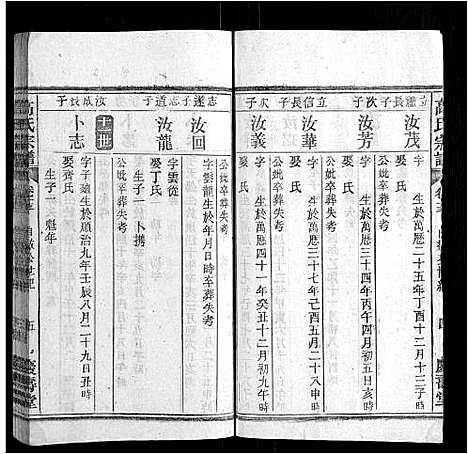 高氏宗譜
慶壽堂
立德長子
汝茂
字 生於萬曆二十五年丁酉十二月十三子時
娶 氏
公妣卒葬失考
次子
汝芳
字 生於萬曆三十四年丙午四月初五日亥時
娶 氏
公妣卒葬失考
立信長子
汝華
字 生於萬曆三十七年己酉五月二十八申時
娶 氏
公妣卒葬失考
次子
汝義
字 生於萬曆四十一年癸丑十二月初九午時
娶 氏
公妣卒葬失考
志遂子
汝回
字雲龍生於年月日時卒葬失考
志道子
汝龍
字雲從
娶丁氏
生子一 卜攜
公妣卒葬失考
十二世
汝成長子
卜志
字子燧生於順治九年壬辰八月二十九日丑時
娶齊氏
生子一 魁年
高氏宗譜
五
慶壽堂